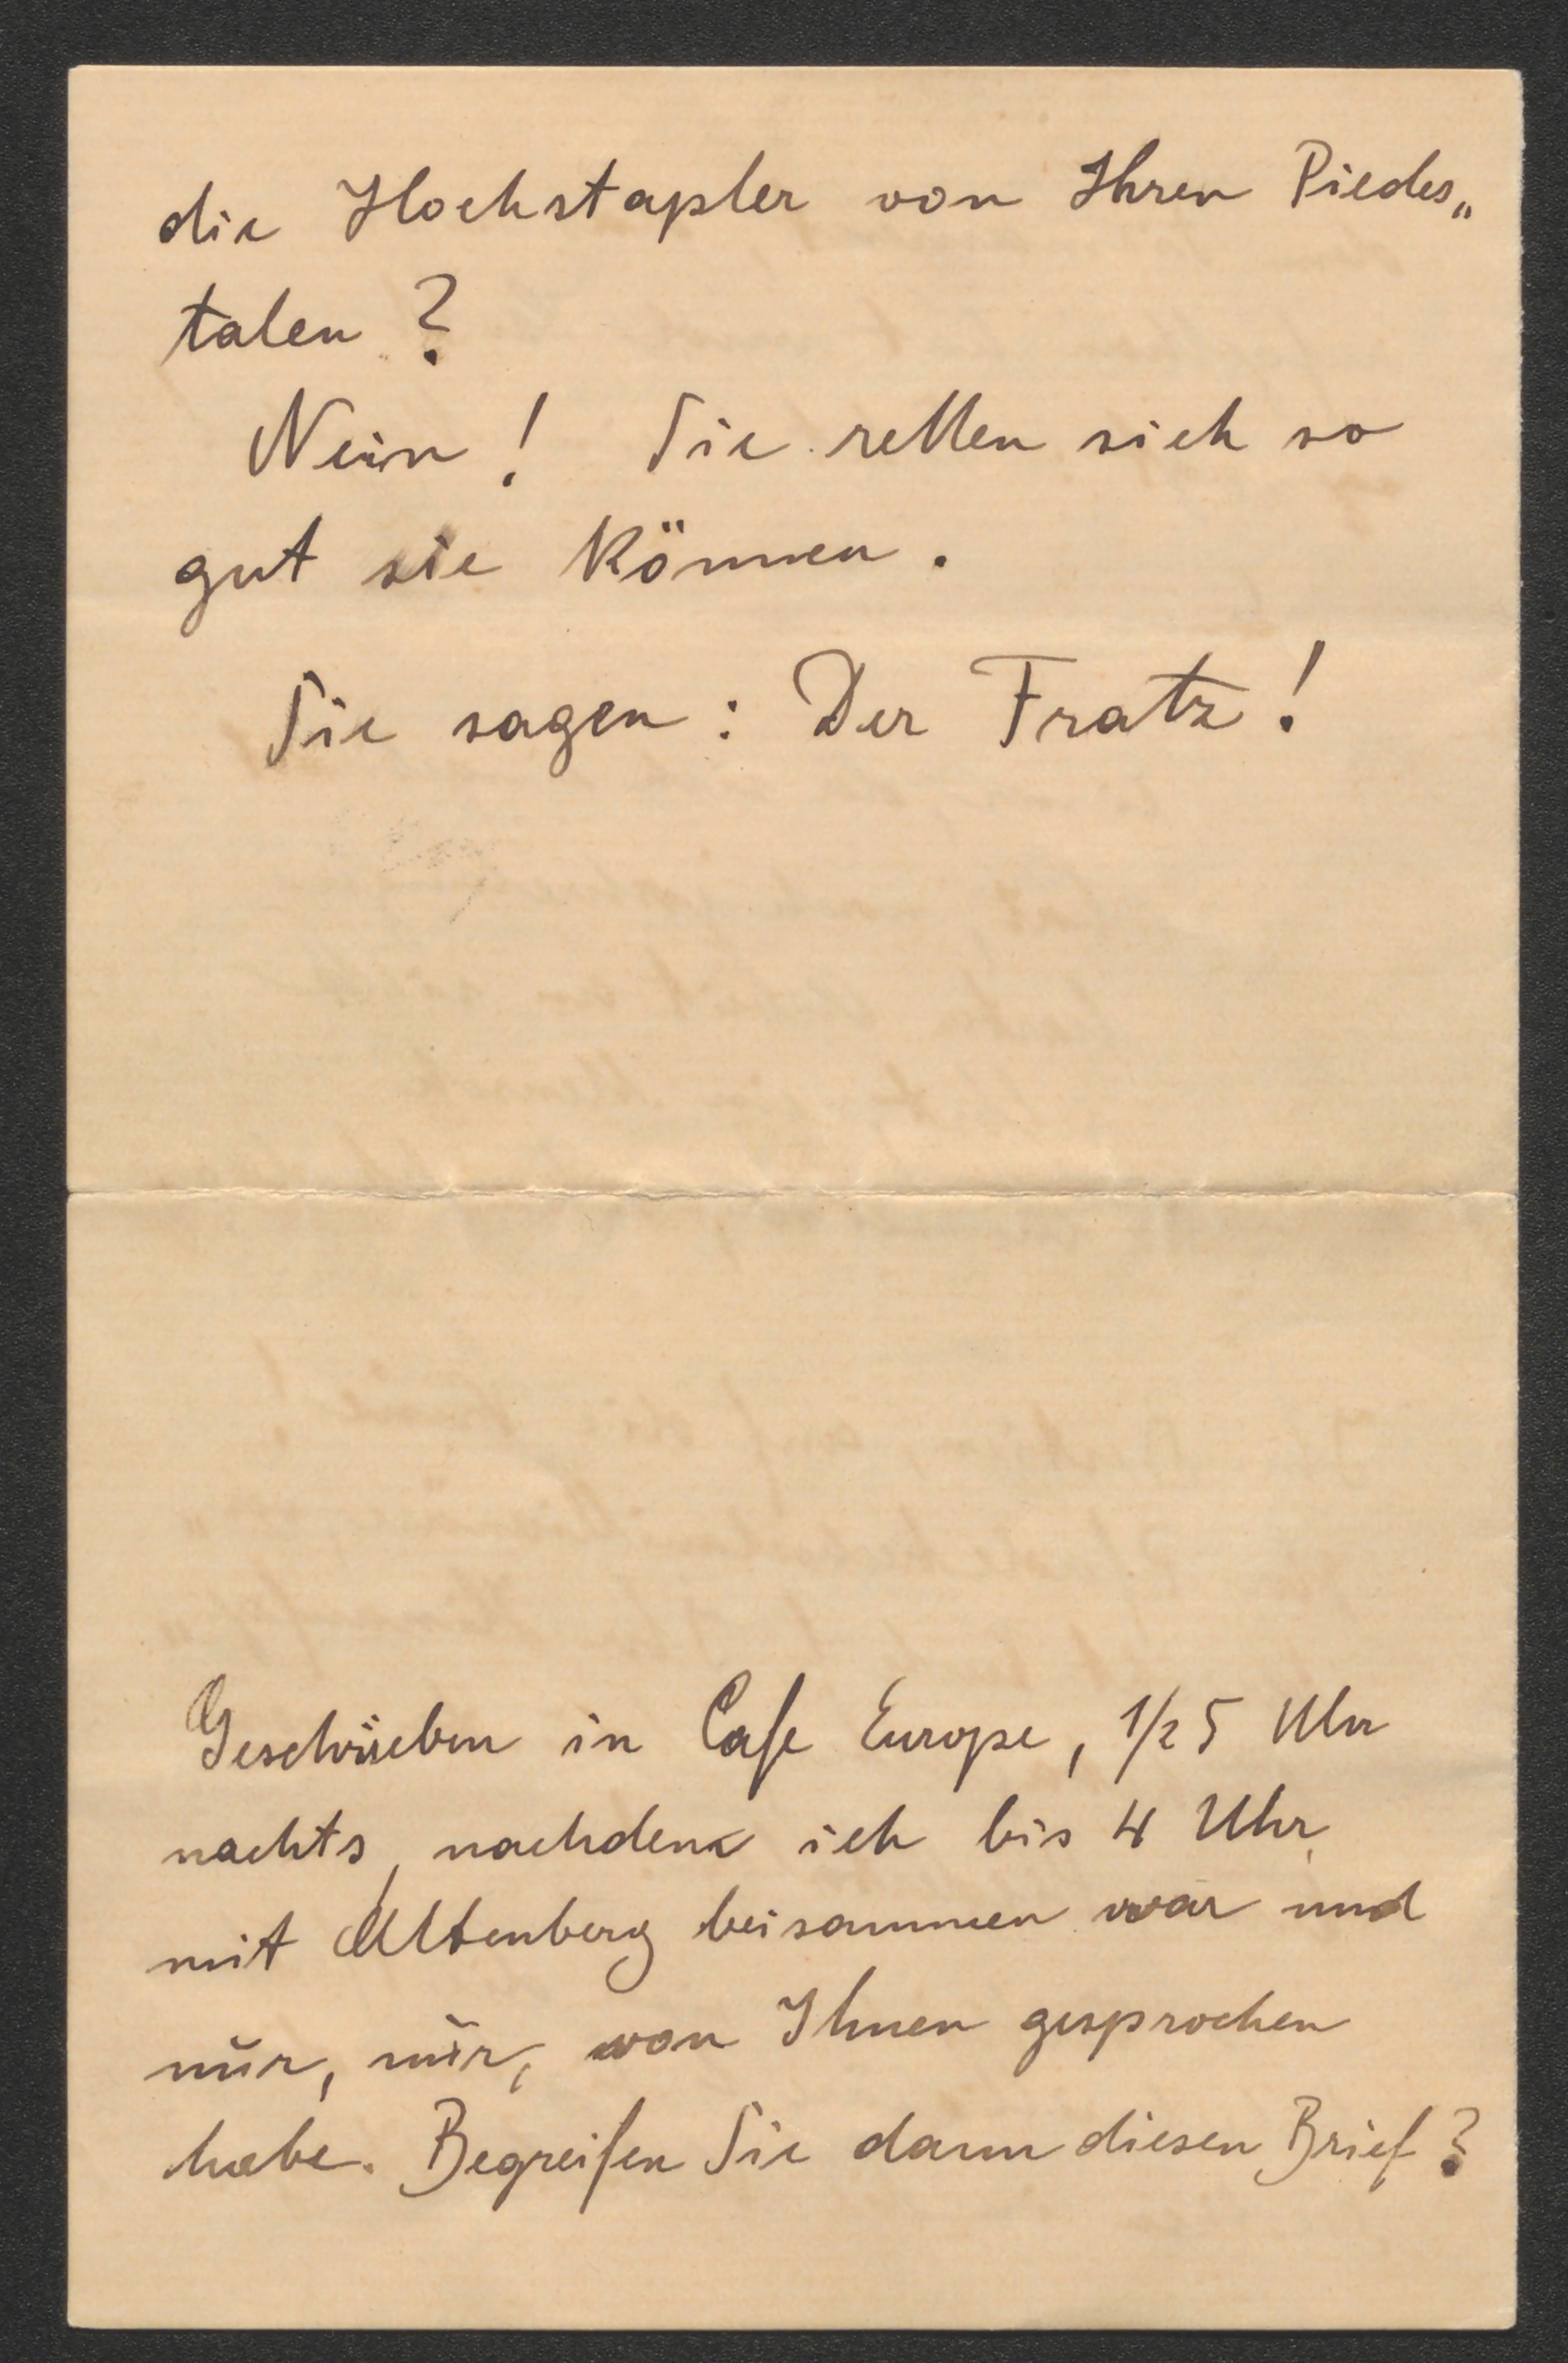 die Hochstapler von Ihren Piedes„
talen?
Nein! Sie retten sich so
gut sie können.
Sie sagen: Der Fratz!
Geschrieben in Cafe Europe, 1/2 5 Uhr
nachts, nachdem ich bis 4 Uhr
mit Altenberg beisammen war und
nur, nur, von Ihnen gesprochen
habe. Begreifen Sie dann diesen Brief?